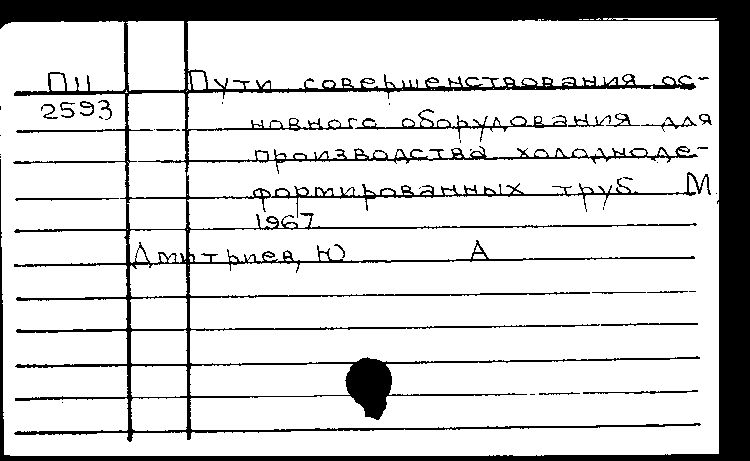 П11 Пути совершенствования ос-
2593
новного оборудования для
производства холодноде-
формированных труб. М
1967
Дмитриев, Ю А